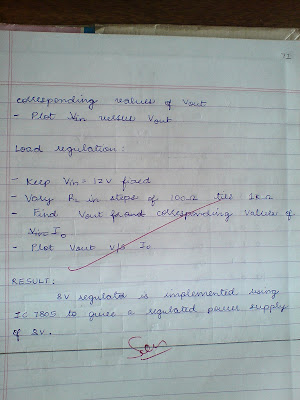 corresponding values of Vout
- Plot Vin versus Vout
Load regulation:
- Keep Vin = 12V fixed
- Vary RL in steps of 100Ω till 1KΩ
- Find Vout and corresponding values of
Io
- Plot Vout v/s Io
RESULT:
8V regulator is implemented using
IC 7805 to give a regulated power supply
of 8V.